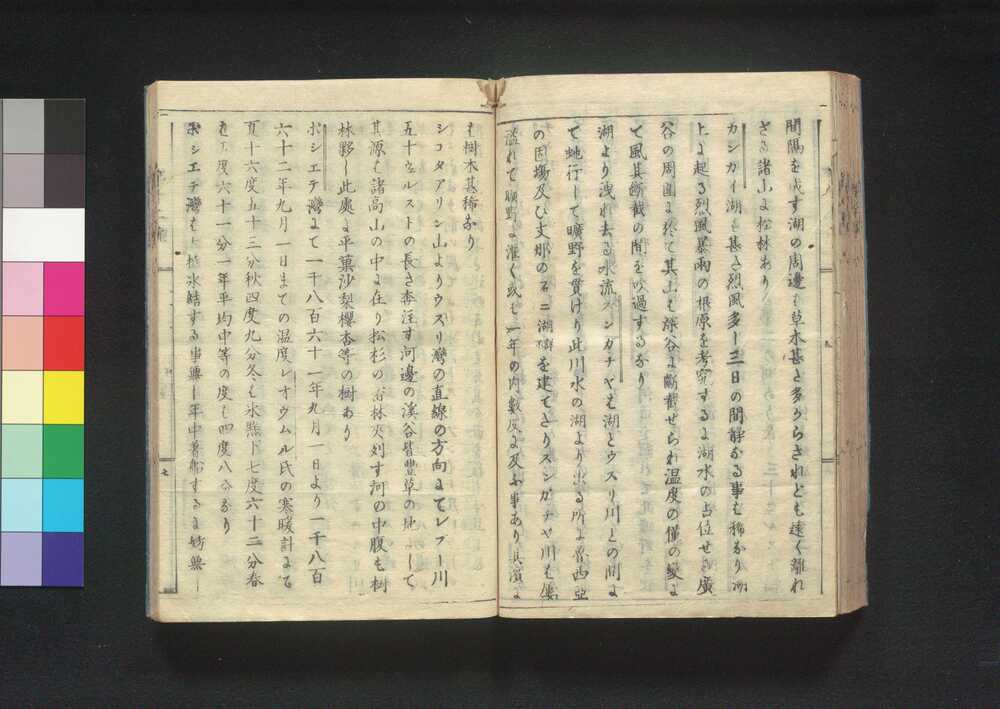 間隔を成す湖の周邊も草木甚と多からされとも遠く離れ
さる諸山に松林あり
カンカイ湖も甚き烈風多し三日の間静かる事も稀なり湖
上に起る烈風暴雨の根原を考究するに湖水の占位せる廣
谷の周圍に於て其山も深谷に斷截せられ温度の僅の變に
て風其斷截の間を吹過するなり
湖より洩れ去る水流スンガチヤも湖とウスリ川との間に
て蛇行して曠野を貫けり此川水の湖より出る所に魯西亞
の固塲及ひ支那の を建てたりスンガチヤ川も屢
溢れて曠野に灌く或も一年の内數度に及ふ事あり其濱に
も樹木甚稀なり
シコタアリン山よりウスリ灣の直線の方向にてレフー川
五十ウエルストの長さ奔注す河邊の溪谷皆豊草の地にして
其源も諸高山の中に在り松杉の密林夾列す河の中腹も樹
林夥し此處に平菓沙梨櫻杏等の樹あり
ポシエテ灣にて一千八百六十一年九月一日より一千八百
六十二年九月一日まての温度レオウムル氏の寒暖計にて
夏十六度五十三分秋四度九分冬も氷點下七度六十二分春
も三度六十一分一年平均中等の度も四度八分なり
ポシエテ灣も 氷結する事無し年中着船するに妨無し
七